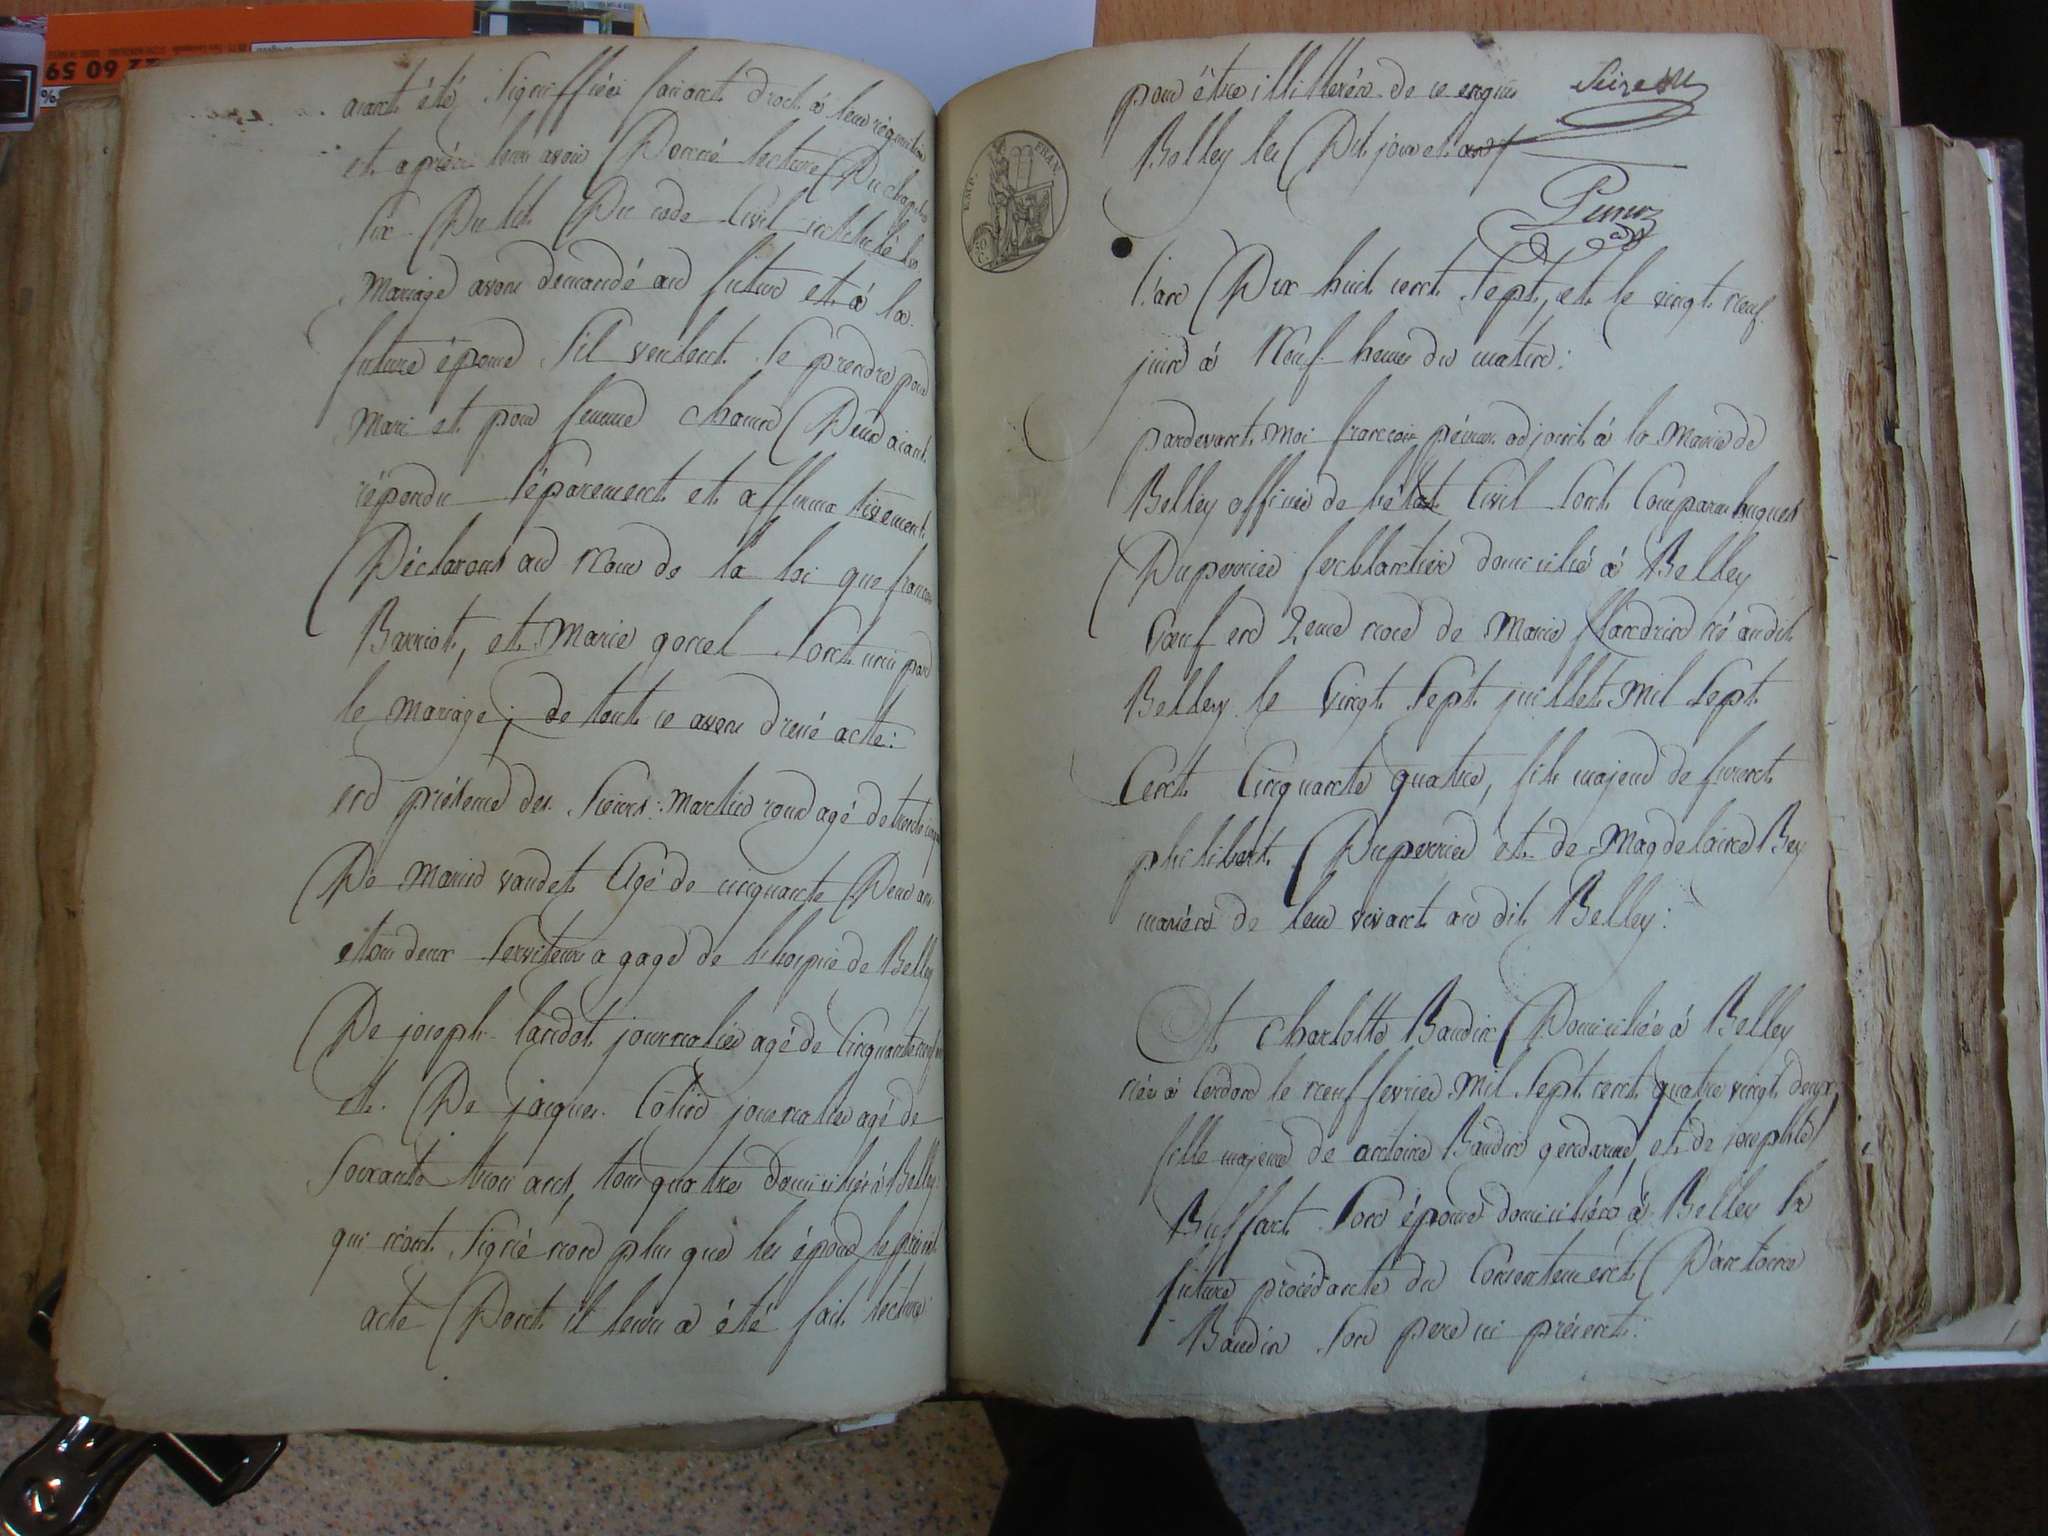 aiant été signiffiée faisant droit à leur réquisition
et après leur avoir Donné lecture Du chapitre
six Du tit. Du code Civil intitulé le
mariage avons demandé au futur et à la
future épouse s'il veulent se prendre pour
mari et pour femme chacun D'eux aiant
répondu séparement et affirmativement
Déclarons au nom de la loi que francois
Barriot, et Marie gonel sont unis par
le mariage; de tout ce avons dressé acte:
en présence des sieurs Martin roux agé de trente cinq
De Marin vaudet Agé de cinquante Deux ans
et tous deux serviteurs a gage de l'hospice de Belley
De joseph landot journalier agé de Cinquante
et De jacques Cotin journalier agé de
soixante trois ans, tous quatre domiciliés à Belley
qui n'ont signé non plus que les époux le présent
acte Dont il leur a été fait lecture
pour être illitterés de ce enquis
Belley les Dit jour et an
EMP. FRAN.
50 C.
L'an Dix huit cent sept, et le vingt neuf
juin à Neuf heures du matin:
pardevant moi francois péroux adjoint à la Mairie de
Belley officier de l'état Civil sont Comparus hugues
Duperrier ferblantier domicilié à Belley
veuf en 2eme noce de Marie flandrin né audit
Belley le Vingt sept juillet mil sept
Cent Cinquante quatre, fils majeur de furent
philibert Duperrier et de Magdelaine Bey
mariés de leur vivant au dit Belley:
Et Charlotte Baudin Domiciliée à Belley
née à Cerdon le neuf fevrier mil sept cent quatre vingt deux,
fille majeure de antoine Baudin gendarme, et de josephte
Buffart son épouse domiciliés à Belley la
future procédante du Consentement D'antoine
Baudin son pere ici présent: